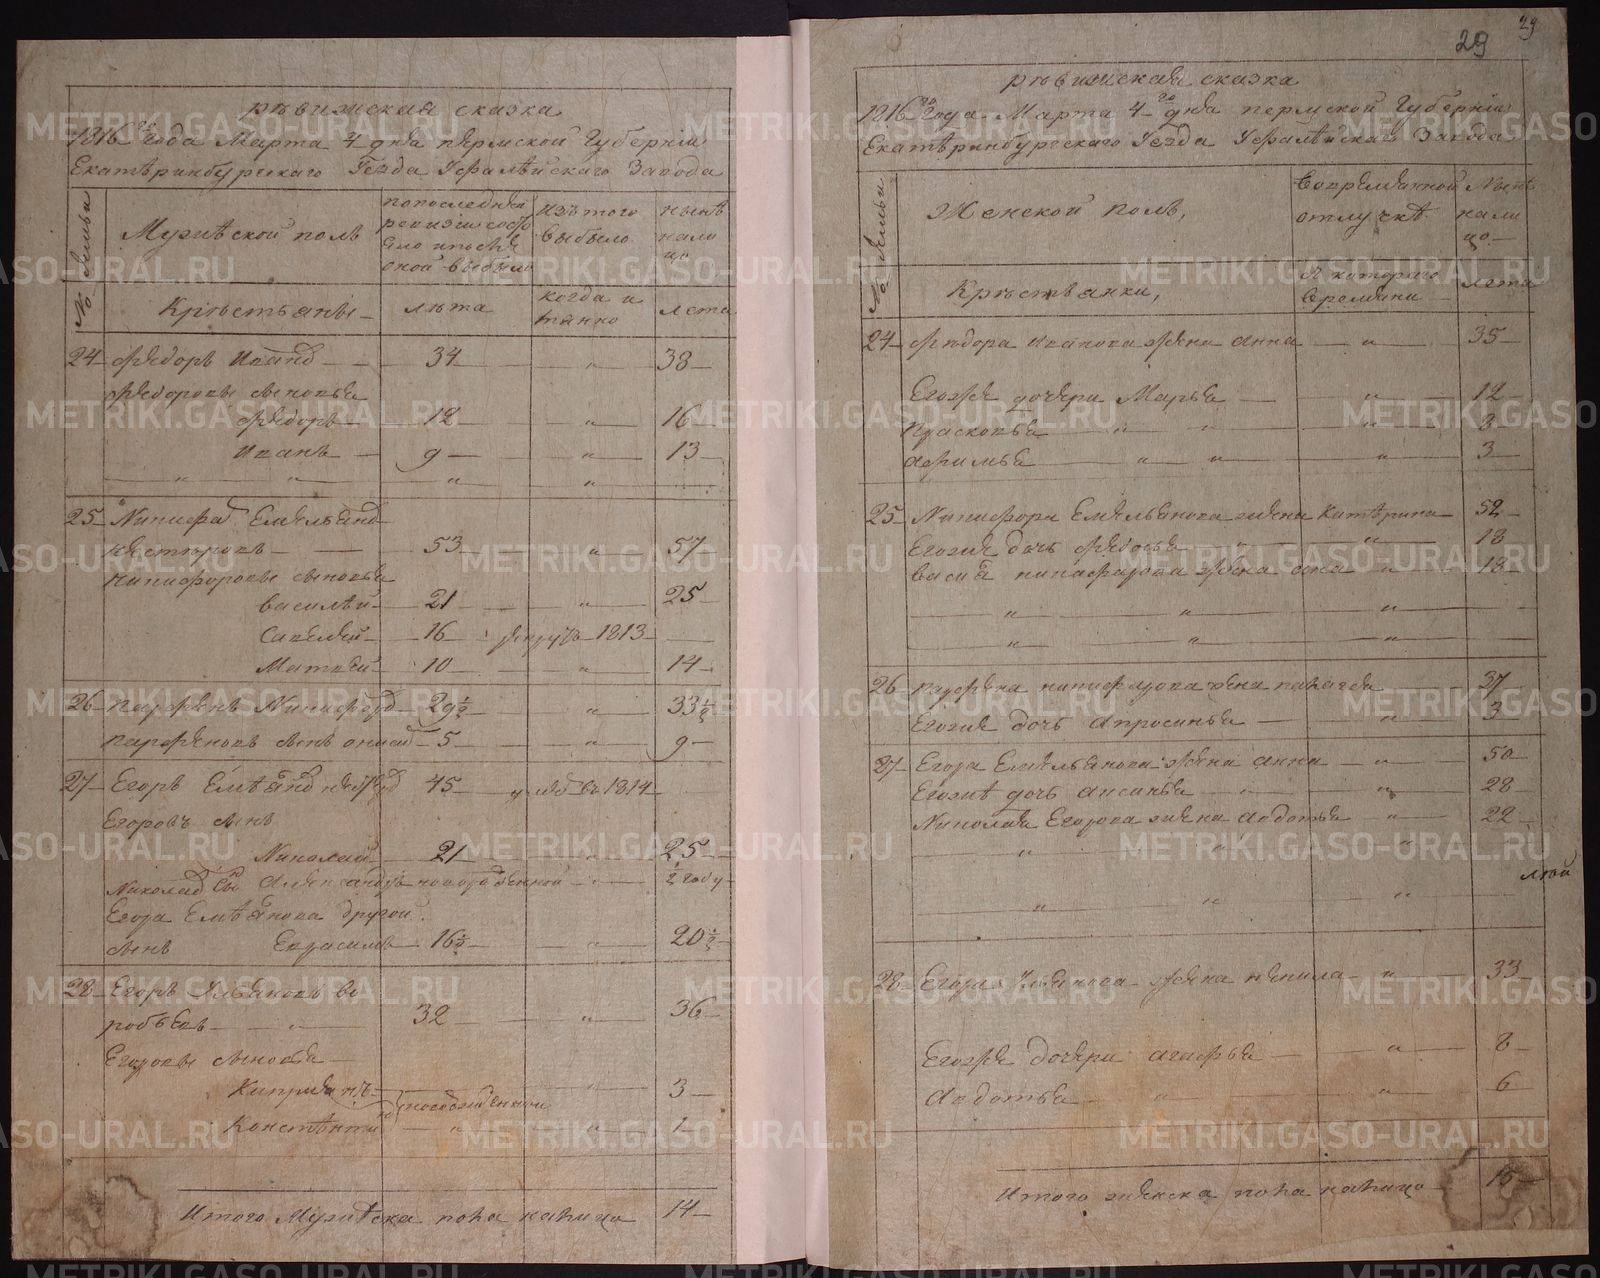 рѣвижская сказка
1816 года Марта 4 дня пермской Губерніи
Екатѣринбургскаго Уезда Уфалѣйскаго Завода
№ Семьи
Мужѣской полъ
попоследней ревизіи состояло и после оной выбыло
Изъ того выбыло
нынѣ налицо
Крѣстьянѣ
лѣта
когда и
лета
24 Федоръ Иванов 34 " 38
Федоровы сыновья
Федоръ 12 " 16
Иванъ 9 " 13
" " " "
25 Никифор Емельянов
Нестѣровъ 53 " 57
Никифоровы сыновья
Василѣй 21 " 25
Савелей 16 рекрутъ 1813
Матвей 10 " 14
26 Парфенъ Никифоров 29½ " 33½
Парфеновъ сынъ 5 " 9
27 Егоръ Емѣлянов 45 1814
Егоровъ сынъ
Николай 21 " 25
Николая сын Александръ новорожденной " ½ году
Егора Емѣлянова другой
сынъ Еврасимъ 16½ " 20½
28 Егоръ Ульяновъ Во
робьевъ " 32 " 36
Егоровы сыновья
Киприянъ " 3
новорожденныи
Констѣнти " " 1
Итого Мужѣска пола налицо 14
29
29
рѣвижская сказка
1816 года Марта 4 дня пермской Губерніи
Екатѣринбургскаго Уезда Уфалѣйскаго Завода
№ Семьи
Женской полъ,
Вовремянной отлучкѣ
Нынѣ налицо
Крѣстьянки,
С котораго времини
лета
24 Федора Иванова жена Анна " 35
Егожѣ дочери Марья " 12
Прасковья " " " 8
Афимья " " " 3
25 Никифора Емельянова жена Катѣрина 52
Егоже дочь Федосья " " 18
Васил никифорова жена " 18
" " "
" " "
26 Парфена никифорова жена палагея 37
Егоже дочь Апросинья " 3
27 Егора Емельянова жена Анна " 50
Егожѣ дочь Аксинья " " 28
Николая Егорова жена Авдотья " 22
" " "
" " "
28 Егора Ульянова жена ненила " 33
Егоже дочери Агафья " 8
Авдотья " " 6
Итого женска пола налицо 15
METRIKI.GASO-URAL.RU